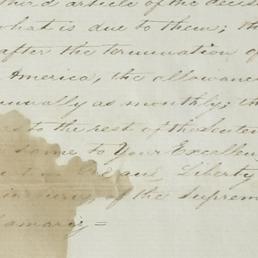 third article of the decis
what is due to them; th
after the termination of
America, the allowance
nually as monthly; th
as to the rest of the
same to Your Excellen
and Liberty
of the Suprem